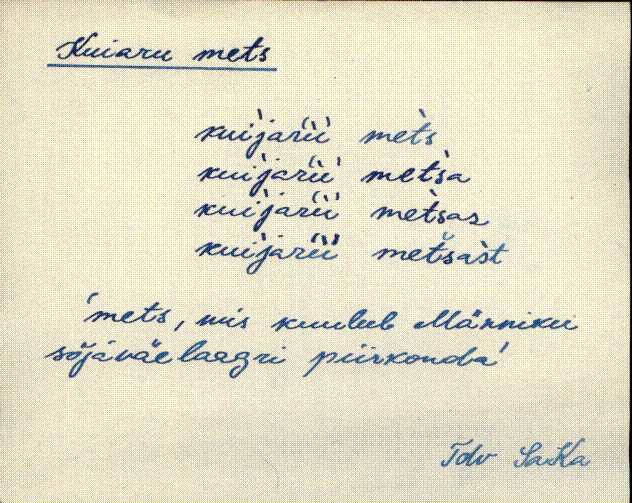 Kuiaru mets
kui̬jarìi mèts
kui̬jarìi mètsa
kui̬jarìi mètsas
kui̬jarìi mètsast
'mets, mis kuulub Männiku
sõjaväelaagri piirkonda'
Tdv SaKa